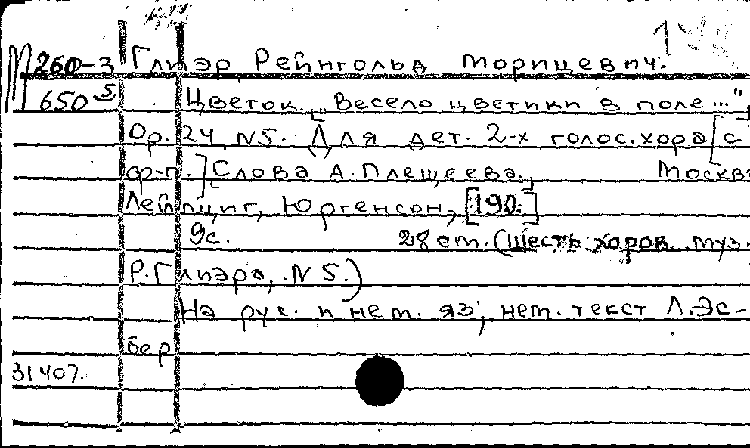 М 260-3 Глиэр Рейнгольд Морицевич.
650 5 Цветок. „Весело цветики в поле..."
Op. 24 N5. Для дет. 2-х голос. хора [с
ф-п.] [Слова А. Плещеева.] Москва
Лейпциг, Юргенсон, [190.]
9с. 28 cm. (Шесть хоров. муз.
Р. Глиэра, N 5.)
На рус. и нем. яз; нем. текст Л. Эс-
бер
31407.